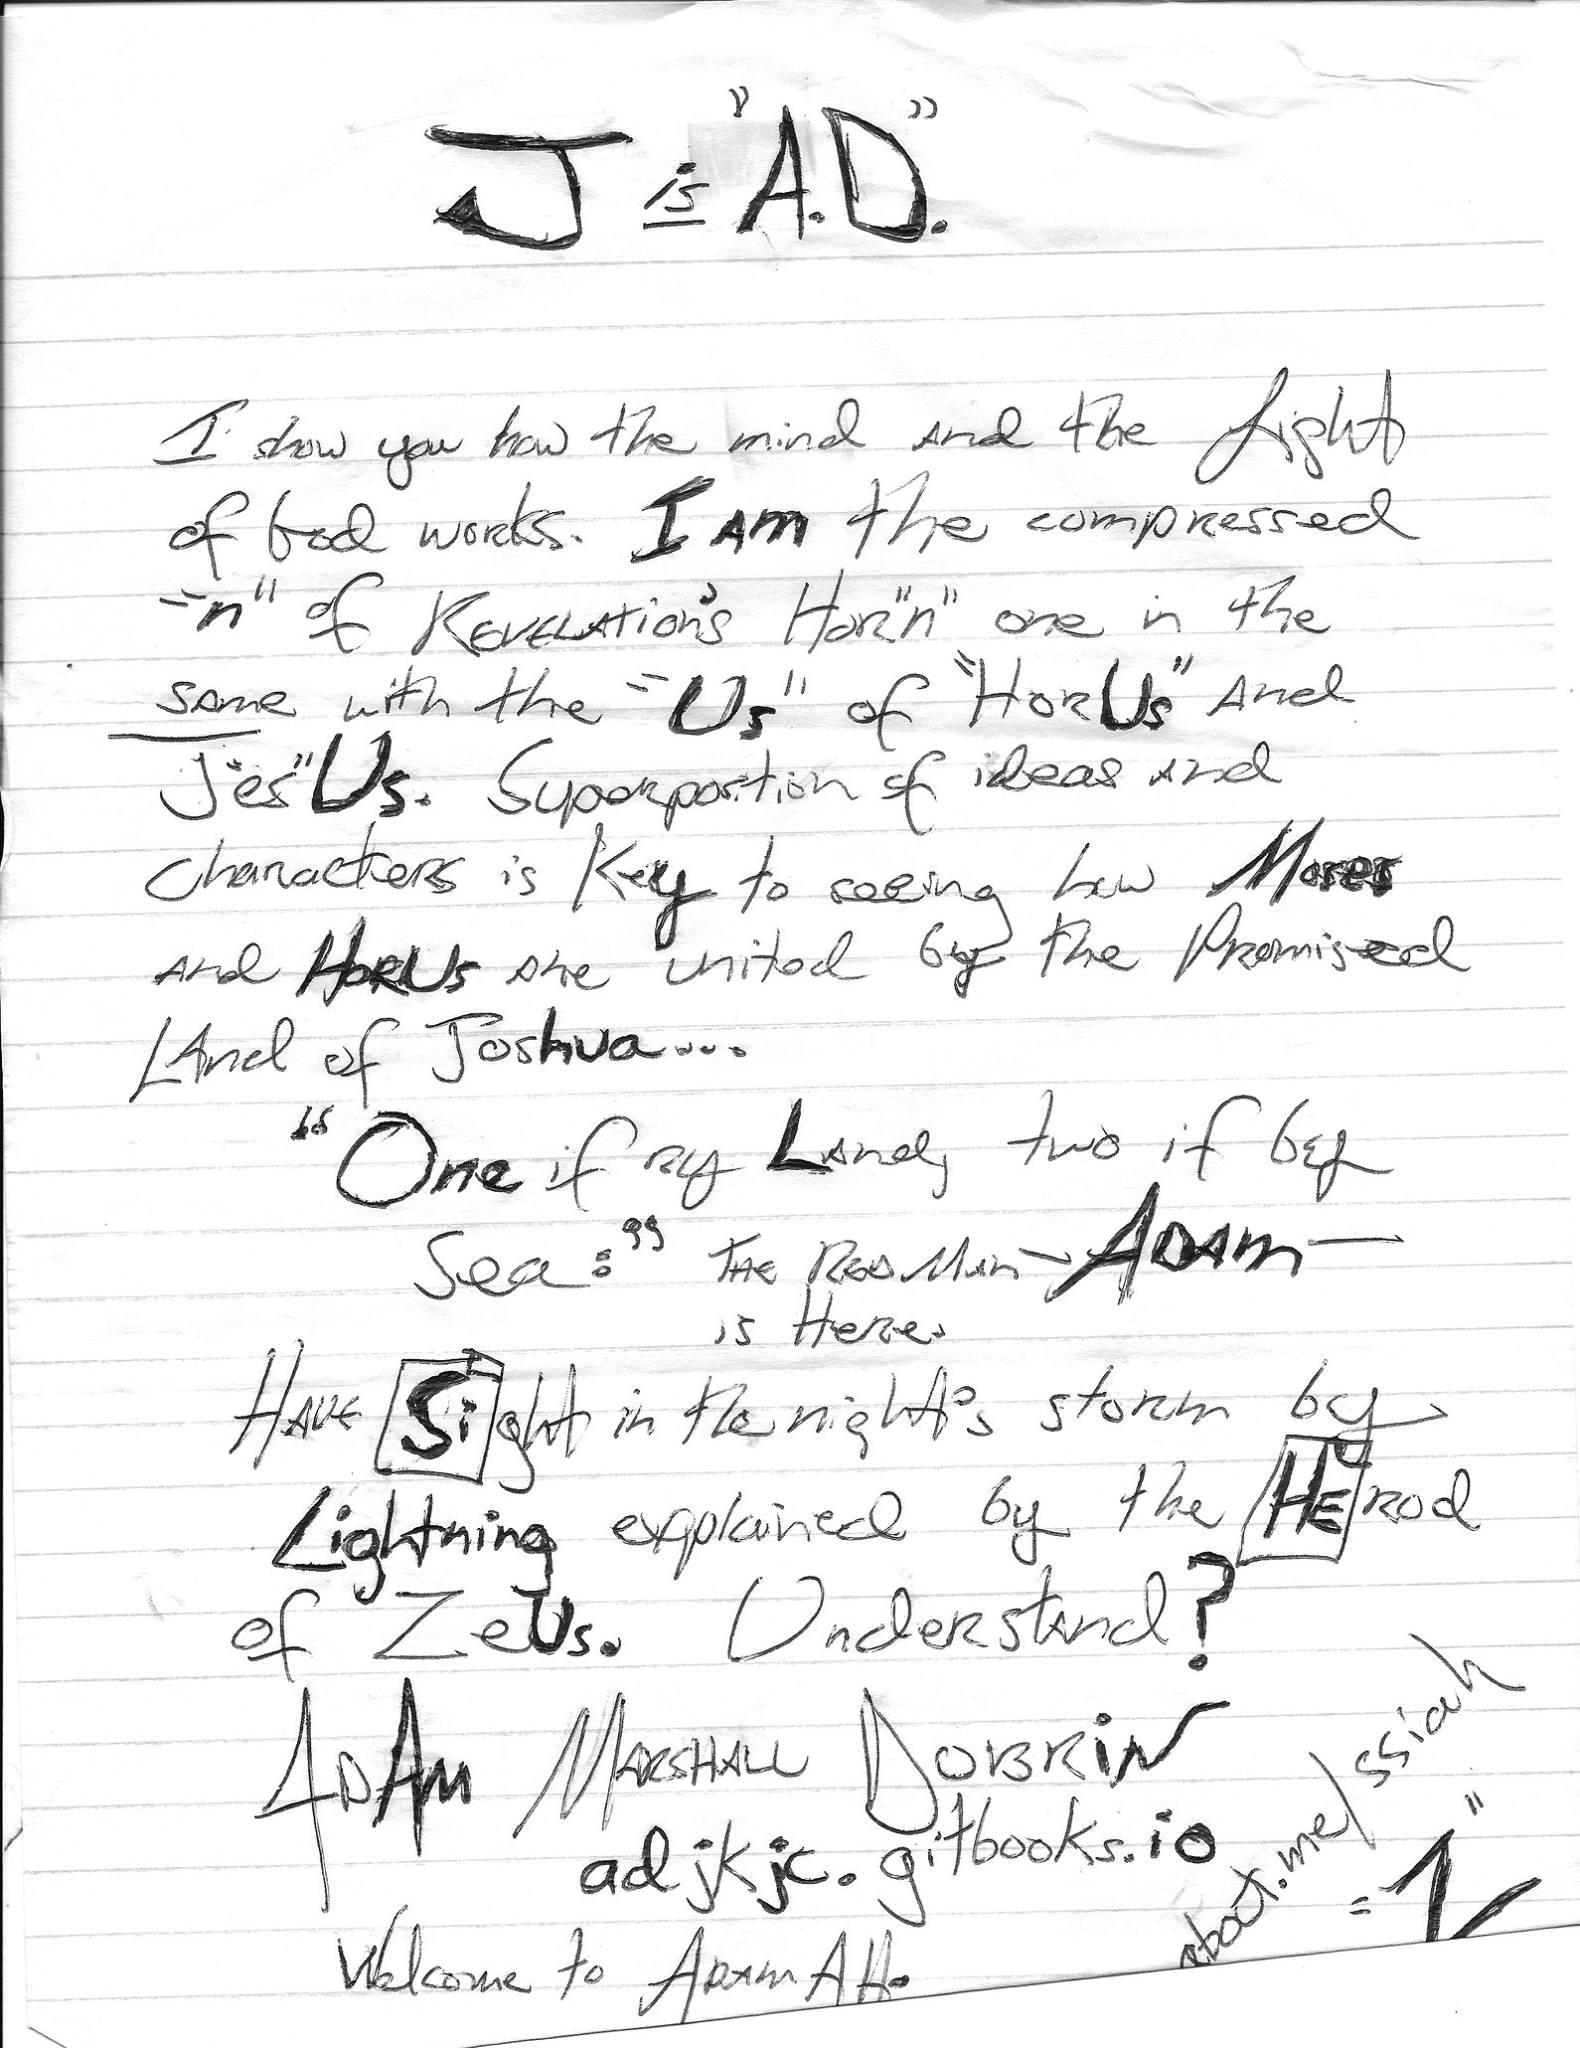 J is "A.D."
I show you how the mind and the Light
of God works. I AM the compressed
"n" of REVELATION'S HOR"n" one in the
same with the "Us" of "HORUs" And
J"es"Us. Superposition of ideas and
characters is Key to seeing how Moses
and HORUs are united by the Promised
LAnd of Joshua....
"One if by Land, two if by
Sea:" THE RED MAN - ADAM -
is Here.
HAVE Sight in the night's storm by
Lightning explained by the HEROD
of ZeUs. Understand?
ADAM MARSHALL DOBRIN
adjkjc.gitbooks.io
about.me/ssiah
Welcome to ADAMAH.